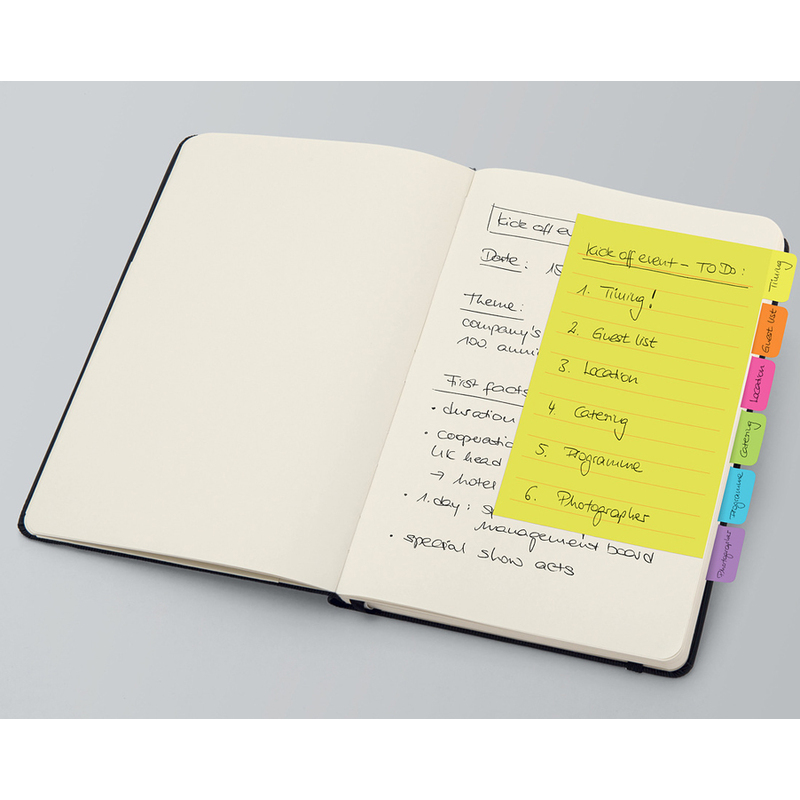 Kick off
Date: 15
Theme:
company's
100. anni
First facts
• duration
• cooperatio
UK head
→ hotel
• 1. day: s
management board
• special show acts
Kick off event - TO DO:
1. Timing!
2. Guest list
3. Location
4 Catering
5. Programme
6. Photographer
Timing
Guest list
Location
Catering
Programme
Photographer